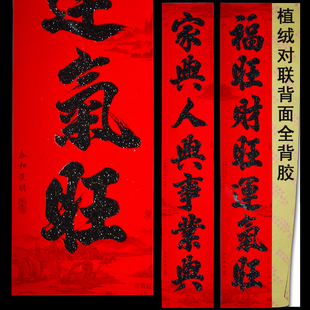 運氣旺
春和景明
家興人興事業興
福旺財旺運氣旺
植绒对联背面全背胶